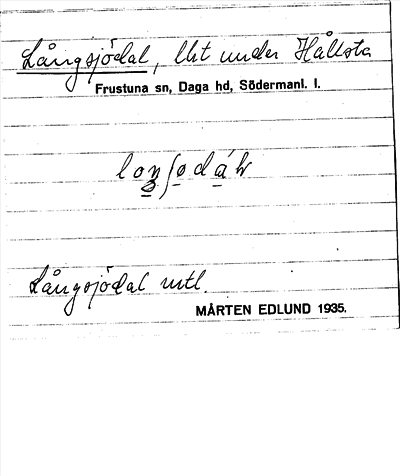 Långsjödal, lht under Hållsta
Frustuna sn, Daga hd, Södermanl. l.
Långsjödal mtl.
MÅRTEN EDLUND 1935.